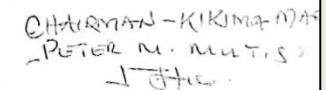 CHAIRMAN - KIKIMA MA
PETER M. MUTIS